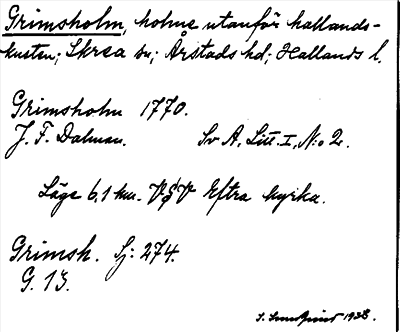 Grimsholm, holme utanför hallands-
kusten; Skrea sn; Årstads hd; Hallands l.
Grimsholm 1770.
J. F. Dalman. Sv A. Litt. I, N:o 2.
Läge 6,1 km. VSV Eftra kyrka.
Grimsh. Sj: 274.
G. 13.
S. 1938.